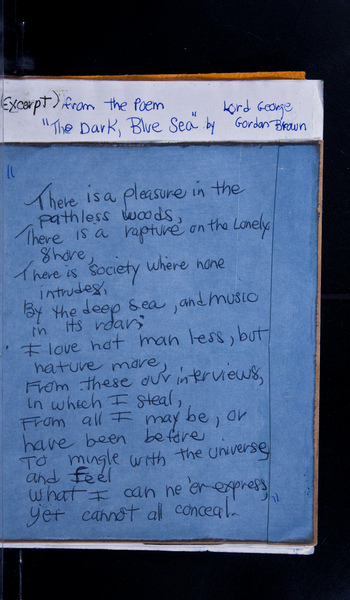 (Excerpt) from the Poem Lord George
"The Dark, Blue Sea" by Gordan Brown
"
There is a pleasure in the
pathless woods,
There is a rapture on the Lonely
Shore,
There is society where none
intrudes,
By the deep sea, and music
in its roar;
I love not man less, but
nature more,
From these our interviews,
in which I steal,
From all I may be, or
have been before
To mingle with the universe,
and feel
what I can ne'er express,
yet cannot all conceal. "